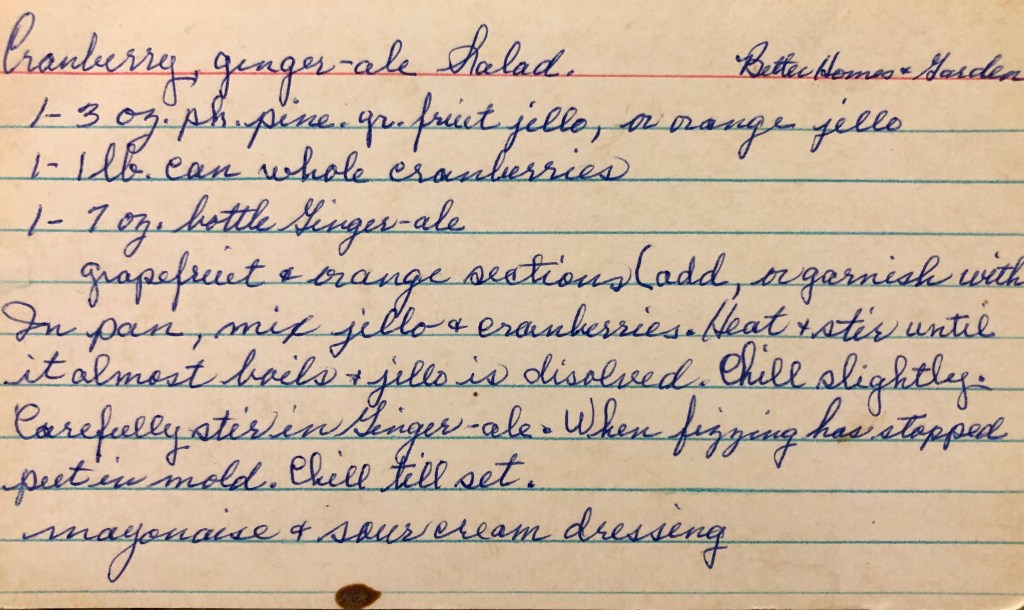 Cranberry, ginger-ale Salad. Better Homes & Garden
1- 3 oz. pk. pine. gr. fruit jello, or orange jello
1- 1 lb. can whole cranberries
1- 7 oz. bottle Ginger-ale
grapefruit & orange sections (add, or garnish with
In pan, mix jello & cranberries. Heat & stir until
it almost boils & jello is disolved. Chill slightly.
Carefully stir in Ginger-ale. When fizzing has stopped
put in mold. Chill till set.
mayonaise & sour cream dressing